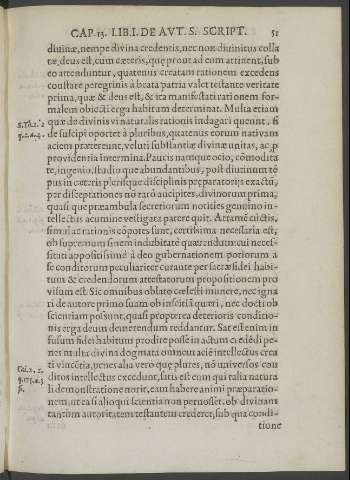 CAP. 13. LIB. I. DE AVT. S. SCRIPT. 51
diuinæ, nempe diuina credentis, nec non diuinitus colla
tæ, deus est, cum cæteris, quę prout ad eum attinent, sub
eo attenduntur, quatenus creatam rationem excedens
constare peregrinis à beata patria valet testante veritate
prima, quæ & deus est, & ita manifestati rationem for-
malem obiecti erga habitum determinat. Multa etiam
quæ de diuinis vi naturalis rationis indagari queunt, fi
de suscipi oportet à pluribus, quatenus eorum natiuam
aciem prætereunt, veluti substantiæ diuinæ vnitas, ac
prouidentia intermina. Paucis namque ocio, cōmodita
te, ingenio, studio que abundantibus, post diutinum tē
pus in cæteris plerisque disciplinis præparatorijs exactū,
per disceptationes nō rarò ancipites, diuinorum prima,
quasi que præambula secretiorum notities genuino in-
tellectus acumine vestigata patere quit. Attamē dictis,
simul ac rationis cōpotes sunt, certissima necessaria est,
ob supremum finem indubitatè quærendum: cui neces-
sitati appositissimè à deo gubernationem potiorum a
se conditorum peculiariter curante per sacræ fidei habi-
tum & credendorum attestatorum propositionem pro
visum est. Sic omnibus oblato cælesti munere, nec igna
ri de autore primo suam ob inscitiā quæri, nec docti ob
scientiam possunt, quasi propterea deterioris conditio-
nis erga deum demerendum reddantur. Sat est enim in
fusum fidei habitum prodire posse in actum credēdi pe-
nes multa diuina dogmata omnem aciē intellectus crea
ti vincētia, penes alia vero quę plures, nō vniuersos con
ditos intellectus excedunt, satis est eum qui talia natura
li demonstratione norit, eam habere animi præparatio-
nem, vt ea si alioqui scientia non pernosset, ob diuinam
tantùm autoritatem testantem crederet, sub qua condi-
tione
S. Th. 2. 2